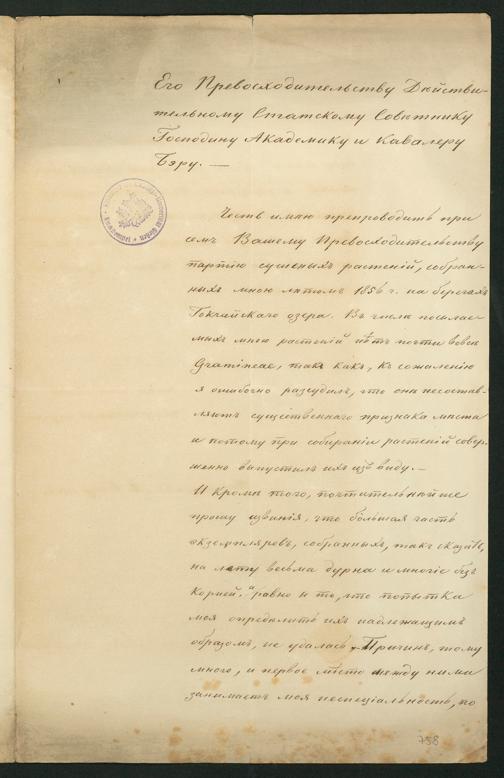 Его Превосходительству Действи-
тельному Статскому Советнику
Господину Академику и Кавалеру
Бэру. —
Честь имею препроводить при
семъ Вашему Превосходительству
партію сушеныхъ растеній, собран-
ныхъ мною лѣтомъ 1856 г. на берегахъ
Гокчайскаго озера. Въ числѣ посылае-
мыхъ мною растеній нѣтъ почти вовсе
Gramineae, такъ какъ, къ сожалѣнію
я ошибочно разсудилъ, что они несостав-
ляютъ существеннаго признака мѣста
и потому при собираніи растеній совер-
шенно выпустилъ ихъ изъ виду. —
И кромѣ того, почтительнѣйше
прошу извинія, что большая часть
экземпляровъ, собранныхъ, такъ сказать,
на лету весьма дурна и многіе безъ
корней, а равно и то, что попытка
моя опредѣлить ихъ надлежащимъ
образомъ, не удалась. Причинъ, тому
много, и первое мѣсто между ними
занимаетъ моя неспеціальность, но
758